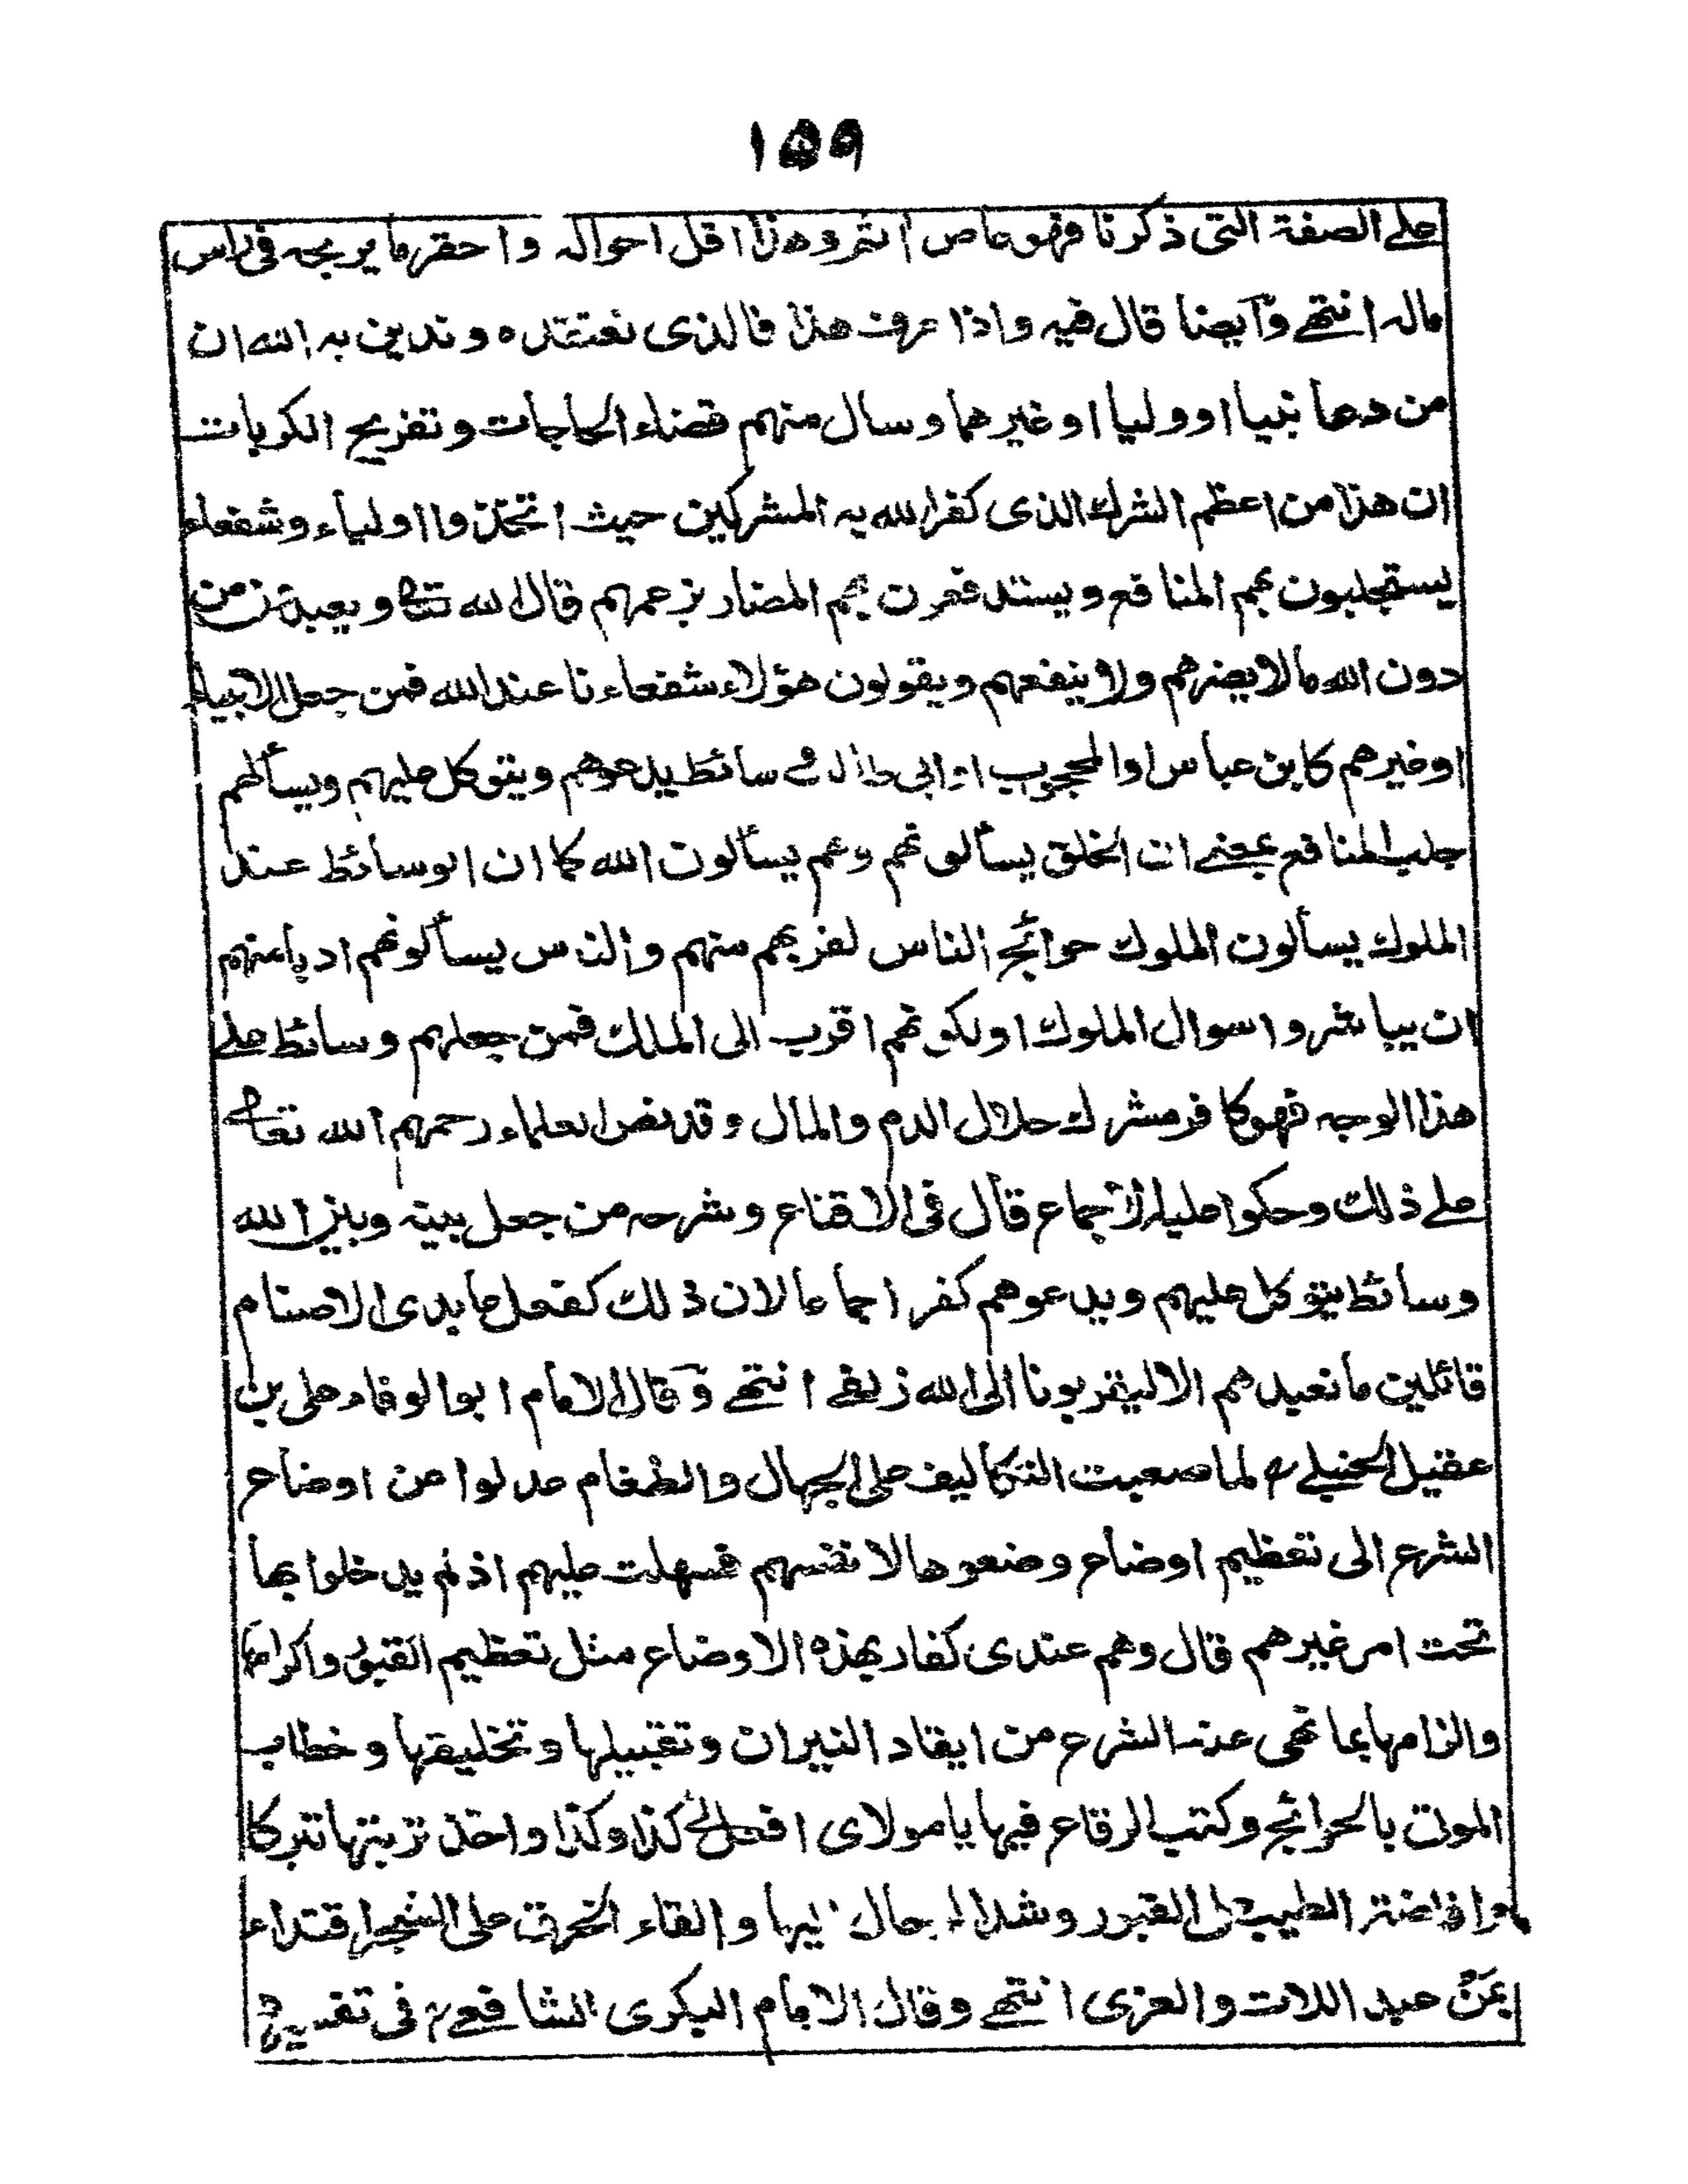 ١٥٩
علے الصفة التی ذکرنا فهو عاص اثم وهذا اقل احواله واحقر ما یربحه فی راس
ماله انتهے وآیضا قال فیه واذا عرف هذا فالذی نعتقده وندین به الله ان
من دعا نبیا او ولیا او غیرهما وسال منهم قضاء الحاجات وتفریح الکربات
ان هذا من اعظم الشرك الذی کفر الله به المشرکین حیث اتخذوا اولیاء وشفعاء
یستجلبون بهم المنافع ویستدفعون بهم المضار بزعمهم قال الله تعالے ویعبدون من
دون الله مالا یضرهم ولا ینفعهم ویقولون هؤلاء شفعاءنا عند الله فمن جعل الانبیاء
او غیرهم کابن عباس او المحجوب او ابی طالب وسائط یدعوهم ویتوکل علیهم ویسألهم
جلب المنافع بمعنے ان الخلق یسألونهم وهم یسألون الله کما ان الوسائط عند
الملوك یسألون الملوك حوائج الناس لقربهم منهم والناس یسألونهم ادبا منهم
ان یباشروا سوال الملوك او لکونهم اقرب الی الملك فمن جعلهم وسائط علے
هذا الوجه فهو کافر مشرك حلال الدم والمال وقد نص العلماء رحمهم الله تعالے
علے ذلك وحکوا علیه الاجماع قال فی الاقناع وشرحه من جعل بینه وبین الله
وسائط یتوکل علیهم ویدعوهم کفر اجماعا لان ذلك کفعل عابدی الاصنام
قائلین ما نعبدهم الا لیقربونا الی الله زلفے انتهے وٓقال الامام ابو الوفاء علی بن
عقیل الحنبلے ؒ لما صعبت التکالیف علی الجهال والطغام عدلوا عن اوضاع
الشرع الی تعظیم اوضاع وضعوها لانفسهم فسهلت علیهم اذ لم یدخلوا بها
تحت امر غیرهم قال وهم عندی کفار بهذه الاوضاع مثل تعظیم القبور واکرامها
والزامها بما نهی عنه الشرع من ایقاد النیران وتقبیلها وتخلیقها وخطاب
الموتی بالحوائج وکتب الرقاع فیها یا مولای افعل لی کذا وکذا واخذ تربتها تبرکا
وافاضة الطیب علی القبور وشد الرحال الیها والقاء الخرق علی الشجر اقتداء
بمَنْ عبد اللات والعزی انتهے وقال الامام البکری الشافعے ؒ فی تفسیره